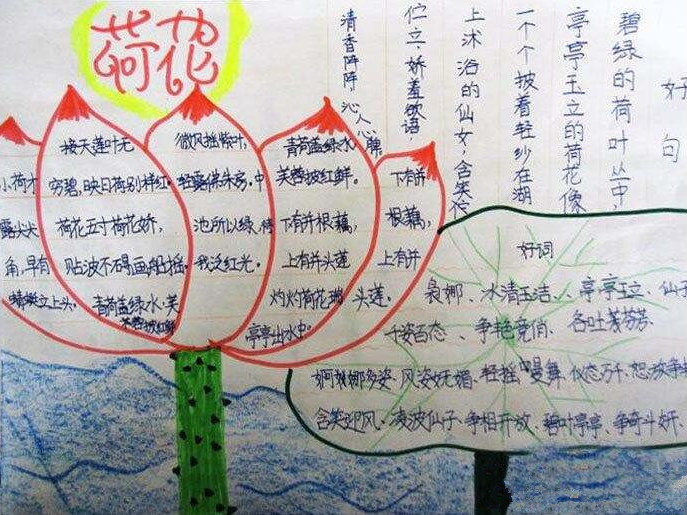 荷花
小荷才
露尖尖
角,早有
蜻蜓立上头。
接天莲叶无
穷碧,映日荷别样红。
荷花五寸荷花娇,
贴波不碍画船摇。
青荷盖绿水,芙
蓉披红鲜
微风摇紫叶,
轻露拂朱房。中
池所以绿,待
我泛红光。
青荷盖绿水
芙蓉披红鲜。
下有并根藕,
上有并头莲
灼灼荷花瑞
亭亭出水中。
下有并
根藕,
上有并
头莲。
好句
碧绿的荷叶丛中,
亭亭玉立的荷花像
一个个披着轻纱在湖
上沐浴的仙女,含笑
伫立,娇羞欲语,
清香阵阵 沁人心脾
好词
袅娜、冰清玉洁、、亭亭玉立、仙子
千姿百态、争艳竞俏、各吐芬芳
婀娜多姿、风姿妩媚、轻摇曼舞、仪态万千、怒放争
含笑迎风。凌波仙子、争相开放、碧叶亭亭、争奇斗妍、